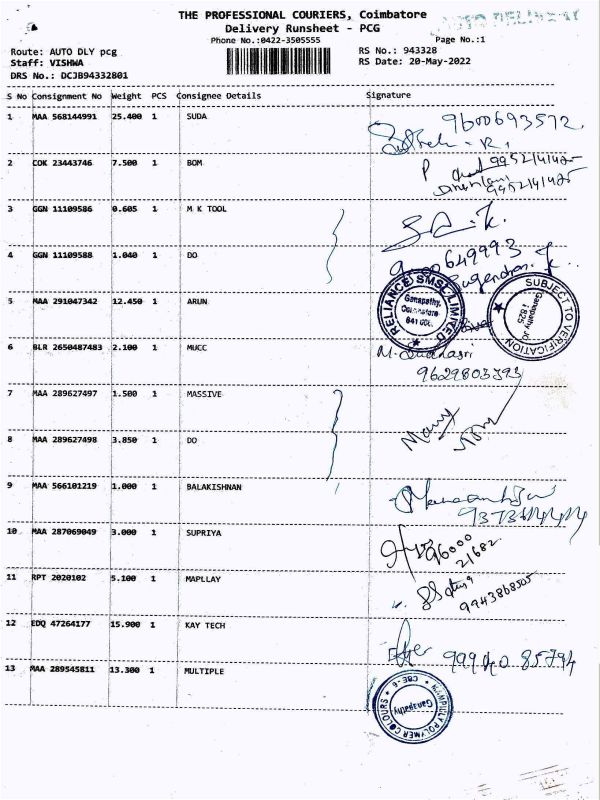 THE PROFESSIONAL COURIERS, Coimbatore
AUTO DELIVERY
Delivery Runsheet - PCG
Phone No.:0422-3505555
Page No.:1
Route: AUTO DLY pcg
RS No.: 943328
Staff: VISHWA
RS Date: 20-May-2022
DRS No.: DCJB94332801
S No Consignment No Weight PCS Consignee Details Signature
1 MAA 568144991 25.400 1 SUDA
9600693572.
2 COK 23443746 7.500 1 BOM
9952141425
9952141425
3 GGN 11109586 0.605 1 M K TOOL
4 GGN 11109588 1.040 1 DO
9000649993
RELIANCE SMSL LIMITED
Ganapathy,
Coimbatore
SUBJECT TO VERIFICATION
5 MAA 291047342 12.450 1 ARUN
6 BLR 2650487483 2.100 1 MUCC
9629803393
7 MAA 289627497 1.500 1 MASSIVE
8 MAA 289627498 3.850 1 DO
9 MAA 566101219 1.000 1 BALAKISHNAN
10 MAA 287069049 3.000 1 SUPRIYA
96000
21682
11 RPT 2020102 5.100 1 MAPLLAY
9943868505
12 EDQ 47264177 15.900 1 KAY TECH
99940 85794
13 MAA 289545811 13.300 1 MULTIPLE
POLYMER COLOURS
CBE-6
Ganapathy